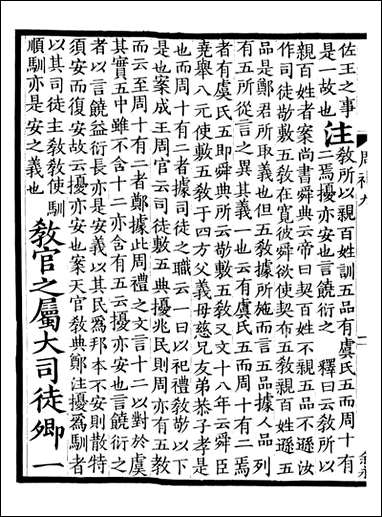 佐王之事
是一故也
注
敎所以親百姓訓五品有虞氏五而周十有
二焉擾亦安也言饒衍之 釋曰云敎所以
親百姓者案尚書舜典云帝曰契百姓不親五品不遜汝
作司徒敬敷五敎在寬彼舜欲使契布五敎親百姓遜五
品是鄭君所取義也但五敎據所施而言五品據人品列
有五所從言之異其義一也云有虞氏五而周十有二焉
者有虞氏五即舜典所云敬敷五敎又文十八年云舜臣
堯舉八元使敷五敎于四方父義母慈兄友弟恭子孝是
也而周十有二者據司徒之職云一曰以祀禮敎敬以下
是也案成王周官云司徒敷五典擾兆民則周亦有五敎
而云至周十有二者鄭據此周禮之文言十二以對於虞
其實五中雖不含十二亦含有五云擾亦安也言饒衍之
者以言饒益衍長亦是安義以其民爲邦本不安則散特
須安而復安故云擾亦安也案天官敎典鄭注擾爲馴者
以其司徒主敎敎使馴
順馴亦是安之義也
敎官之屬大司徒卿一